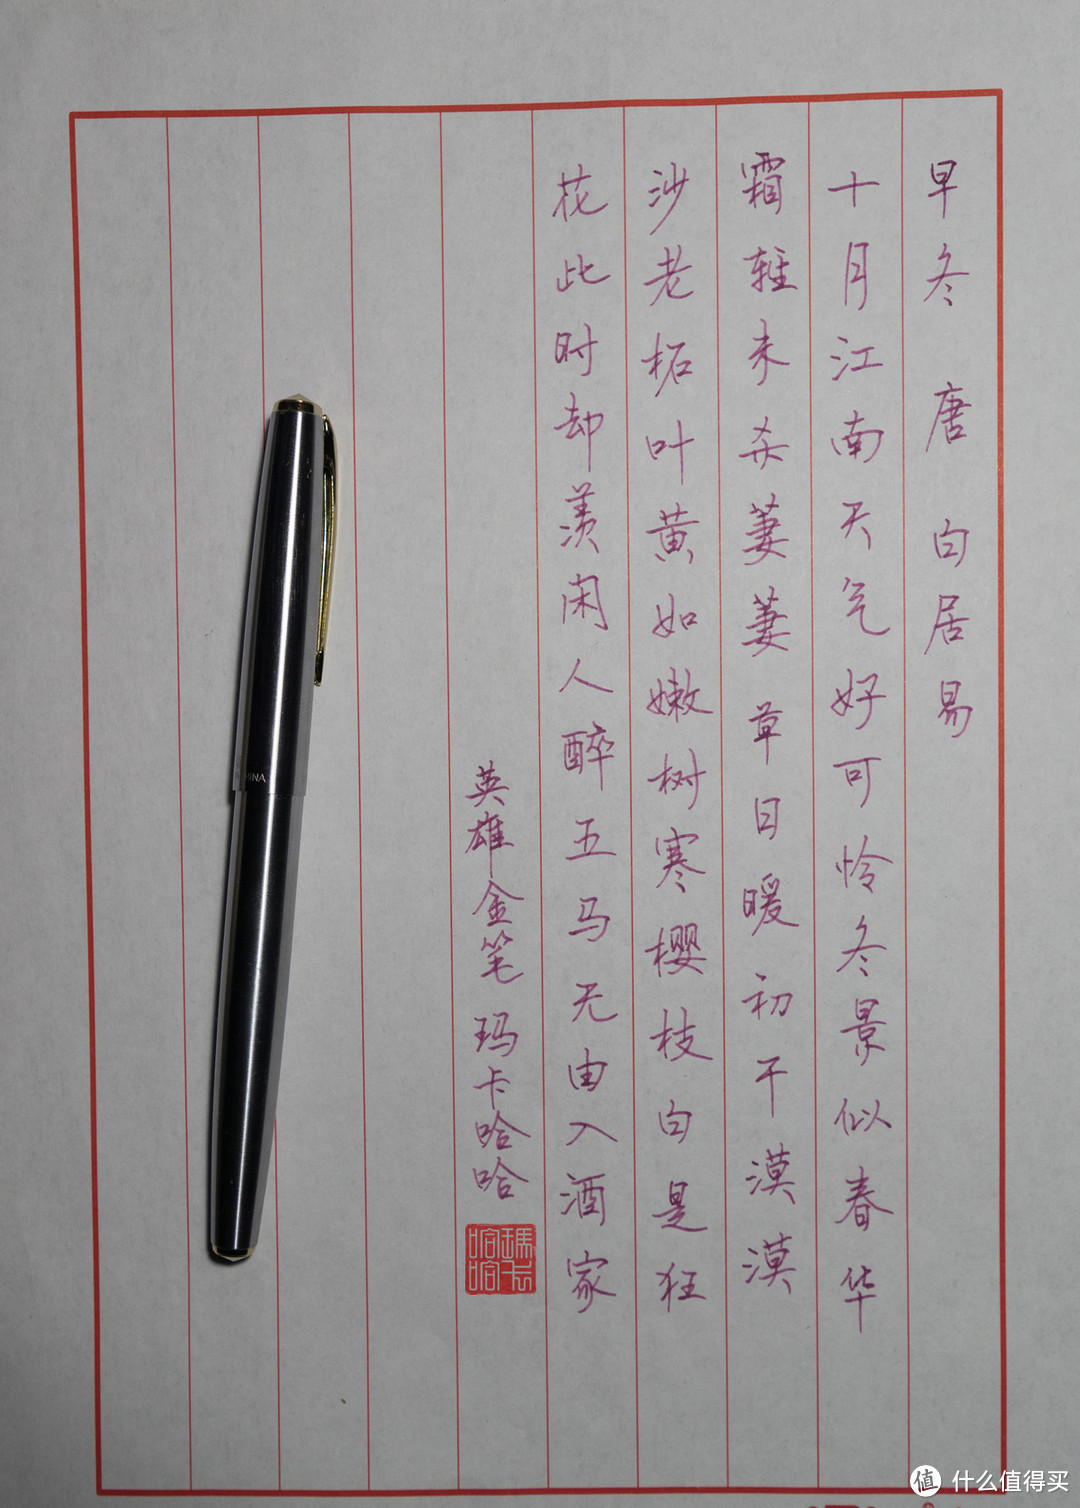 早冬 唐 白居易
十月江南天气好可怜冬景似春华
霜轻未杀萋萋草日暖初干漠漠
沙老柘叶黄如嫩树寒樱枝白是狂
花此时却羡闲人醉五马无由入酒家
英雄金笔 玛卡哈哈
瑪卡哈哈
HINA
值 什么值得买